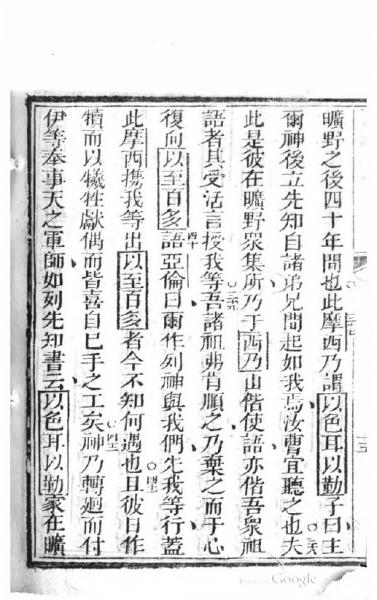 曠野之後四十年間也此摩西乃謂以色耳以勒子曰主
爾神後立先知自諸弟兄間起如我焉汝曹宜聽之也夫
此是彼在曠野眾集所乃于西乃山偕使語亦偕吾眾祖
語者其受活言授我等吾諸祖弗肯順之乃棄之而于心
復向以至百多語亞倫曰爾作列神與我們先我等行蓋
此摩西攜我等出以至百多者今不知何遇也且彼日作
犢而以犧牲獻偶而皆喜自己手之工矣神乃轉廻而付
伊等奉事天之軍師如刻先知書云以色耳以勒家在曠
Google